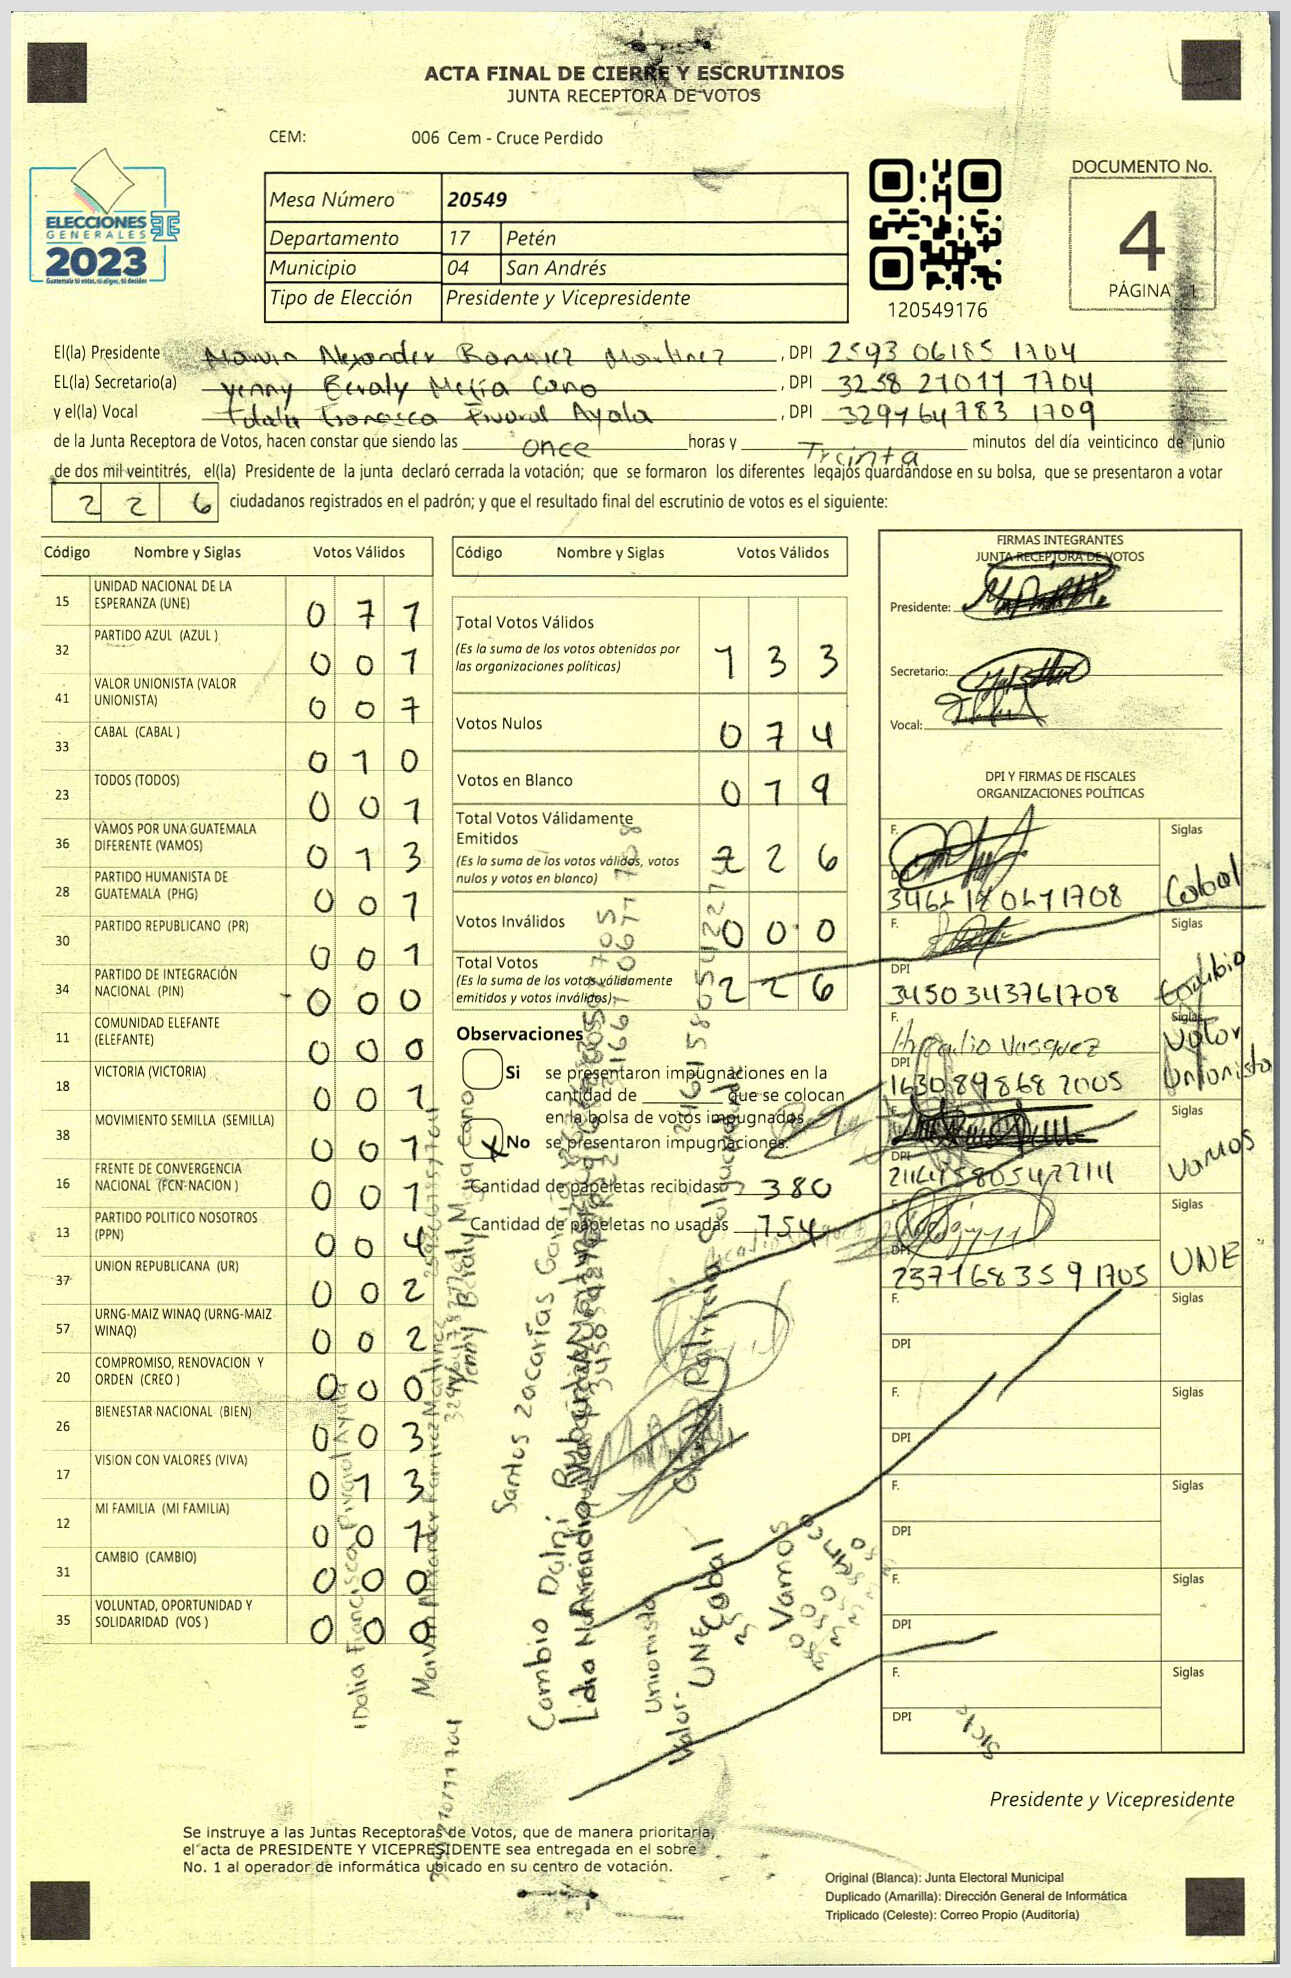 ACTA FINAL DE CIERRE Y ESCRUTINIOS
JUNTA RECEPTORA DE VOTOS
CEM: 006 Cem - Cruce Perdido
ELECCIONES
GENERALES
2023
Guatemala tú votas, tú eliges, tú decides
Mesa Número 20549
Departamento 17 Petén
Municipio 04 San Andrés
Tipo de Elección Presidente y Vicepresidente
120549176
DOCUMENTO No.
4
PÁGINA 1
El(la) Presidente Marvin Alexander Ramirez Martinez , DPI 2593 06185 1704
EL(la) Secretario(a) Yenny Beraly Mejía Cano , DPI 3258 21011 1704
y el(la) Vocal Idalia Francisca Pivaral Ayala , DPI 329764783 1709
de la Junta Receptora de Votos, hacen constar que siendo las once horas y Treinta minutos del día veinticinco de junio
de dos mil veintitrés, el(la) Presidente de la junta declaró cerrada la votación; que se formaron los diferentes legajos guardándose en su bolsa, que se presentaron a votar
226 ciudadanos registrados en el padrón; y que el resultado final del escrutinio de votos es el siguiente:
Código Nombre y Siglas Votos Válidos
15 UNIDAD NACIONAL DE LA ESPERANZA (UNE) 071
32 PARTIDO AZUL (AZUL ) 001
41 VALOR UNIONISTA (VALOR UNIONISTA) 007
33 CABAL (CABAL ) 010
23 TODOS (TODOS) 001
36 VAMOS POR UNA GUATEMALA DIFERENTE (VAMOS) 013
28 PARTIDO HUMANISTA DE GUATEMALA (PHG) 001
30 PARTIDO REPUBLICANO (PR) 001
34 PARTIDO DE INTEGRACIÓN NACIONAL (PIN) 000
11 COMUNIDAD ELEFANTE (ELEFANTE) 000
18 VICTORIA (VICTORIA) 001
38 MOVIMIENTO SEMILLA (SEMILLA) 001
16 FRENTE DE CONVERGENCIA NACIONAL (FCN-NACION ) 001
13 PARTIDO POLITICO NOSOTROS (PPN) 004
37 UNION REPUBLICANA (UR) 002
57 URNG-MAIZ WINAQ (URNG-MAIZ WINAQ) 002
20 COMPROMISO, RENOVACION Y ORDEN (CREO ) 000
26 BIENESTAR NACIONAL (BIEN) 003
17 VISION CON VALORES (VIVA) 013
12 MI FAMILIA (MI FAMILIA) 001
31 CAMBIO (CAMBIO) 000
35 VOLUNTAD, OPORTUNIDAD Y SOLIDARIDAD (VOS ) 000
Código Nombre y Siglas Votos Válidos
Total Votos Válidos 133
(Es la suma de los votos obtenidos por
las organizaciones políticas)
Votos Nulos 074
Votos en Blanco 019
Total Votos Válidamente
Emitidos 226
(Es la suma de los votos válidos, votos
nulos y votos en blanco)
Votos Inválidos 000
Total Votos 226
(Es la suma de los votos válidamente
emitidos y votos inválidos)
Observaciones
Si se presentaron impugnaciones en la
cantidad de ______ que se colocan
en la bolsa de votos impugnados
X No se presentaron impugnaciones.
Cantidad de papeletas recibidas 380
Cantidad de papeletas no usadas 154
FIRMAS INTEGRANTES
JUNTA RECEPTORA DE VOTOS
Presidente:
Secretario:
Vocal:
DPI Y FIRMAS DE FISCALES
ORGANIZACIONES POLÍTICAS
F. Siglas
Cabal
F. Siglas
DPI 3450343761708 Cambio
F. Siglas
Valor Unionista
DPI 1630898682005
F. Siglas
DPI Vamos
F. Siglas
DPI 2371683591705 UNE
F. Siglas
DPI
F. Siglas
DPI
F. Siglas
DPI
F. Siglas
DPI
F. Siglas
DPI
Idalia Francisca Pivaral Ayala
Marvin Alexander Ramirez Martinez
Yenny Beraly Mejia Cano
Santos Zacarías
Cambio
Unionista
Valor
UNE
Cabal
Vamos
Presidente y Vicepresidente
Se instruye a las Juntas Receptoras de Votos, que de manera prioritaria,
el acta de PRESIDENTE Y VICEPRESIDENTE sea entregada en el sobre
No. 1 al operador de informática ubicado en su centro de votación.
Original (Blanca): Junta Electoral Municipal
Duplicado (Amarilla): Dirección General de Informática
Triplicado (Celeste): Correo Propio (Auditoría)